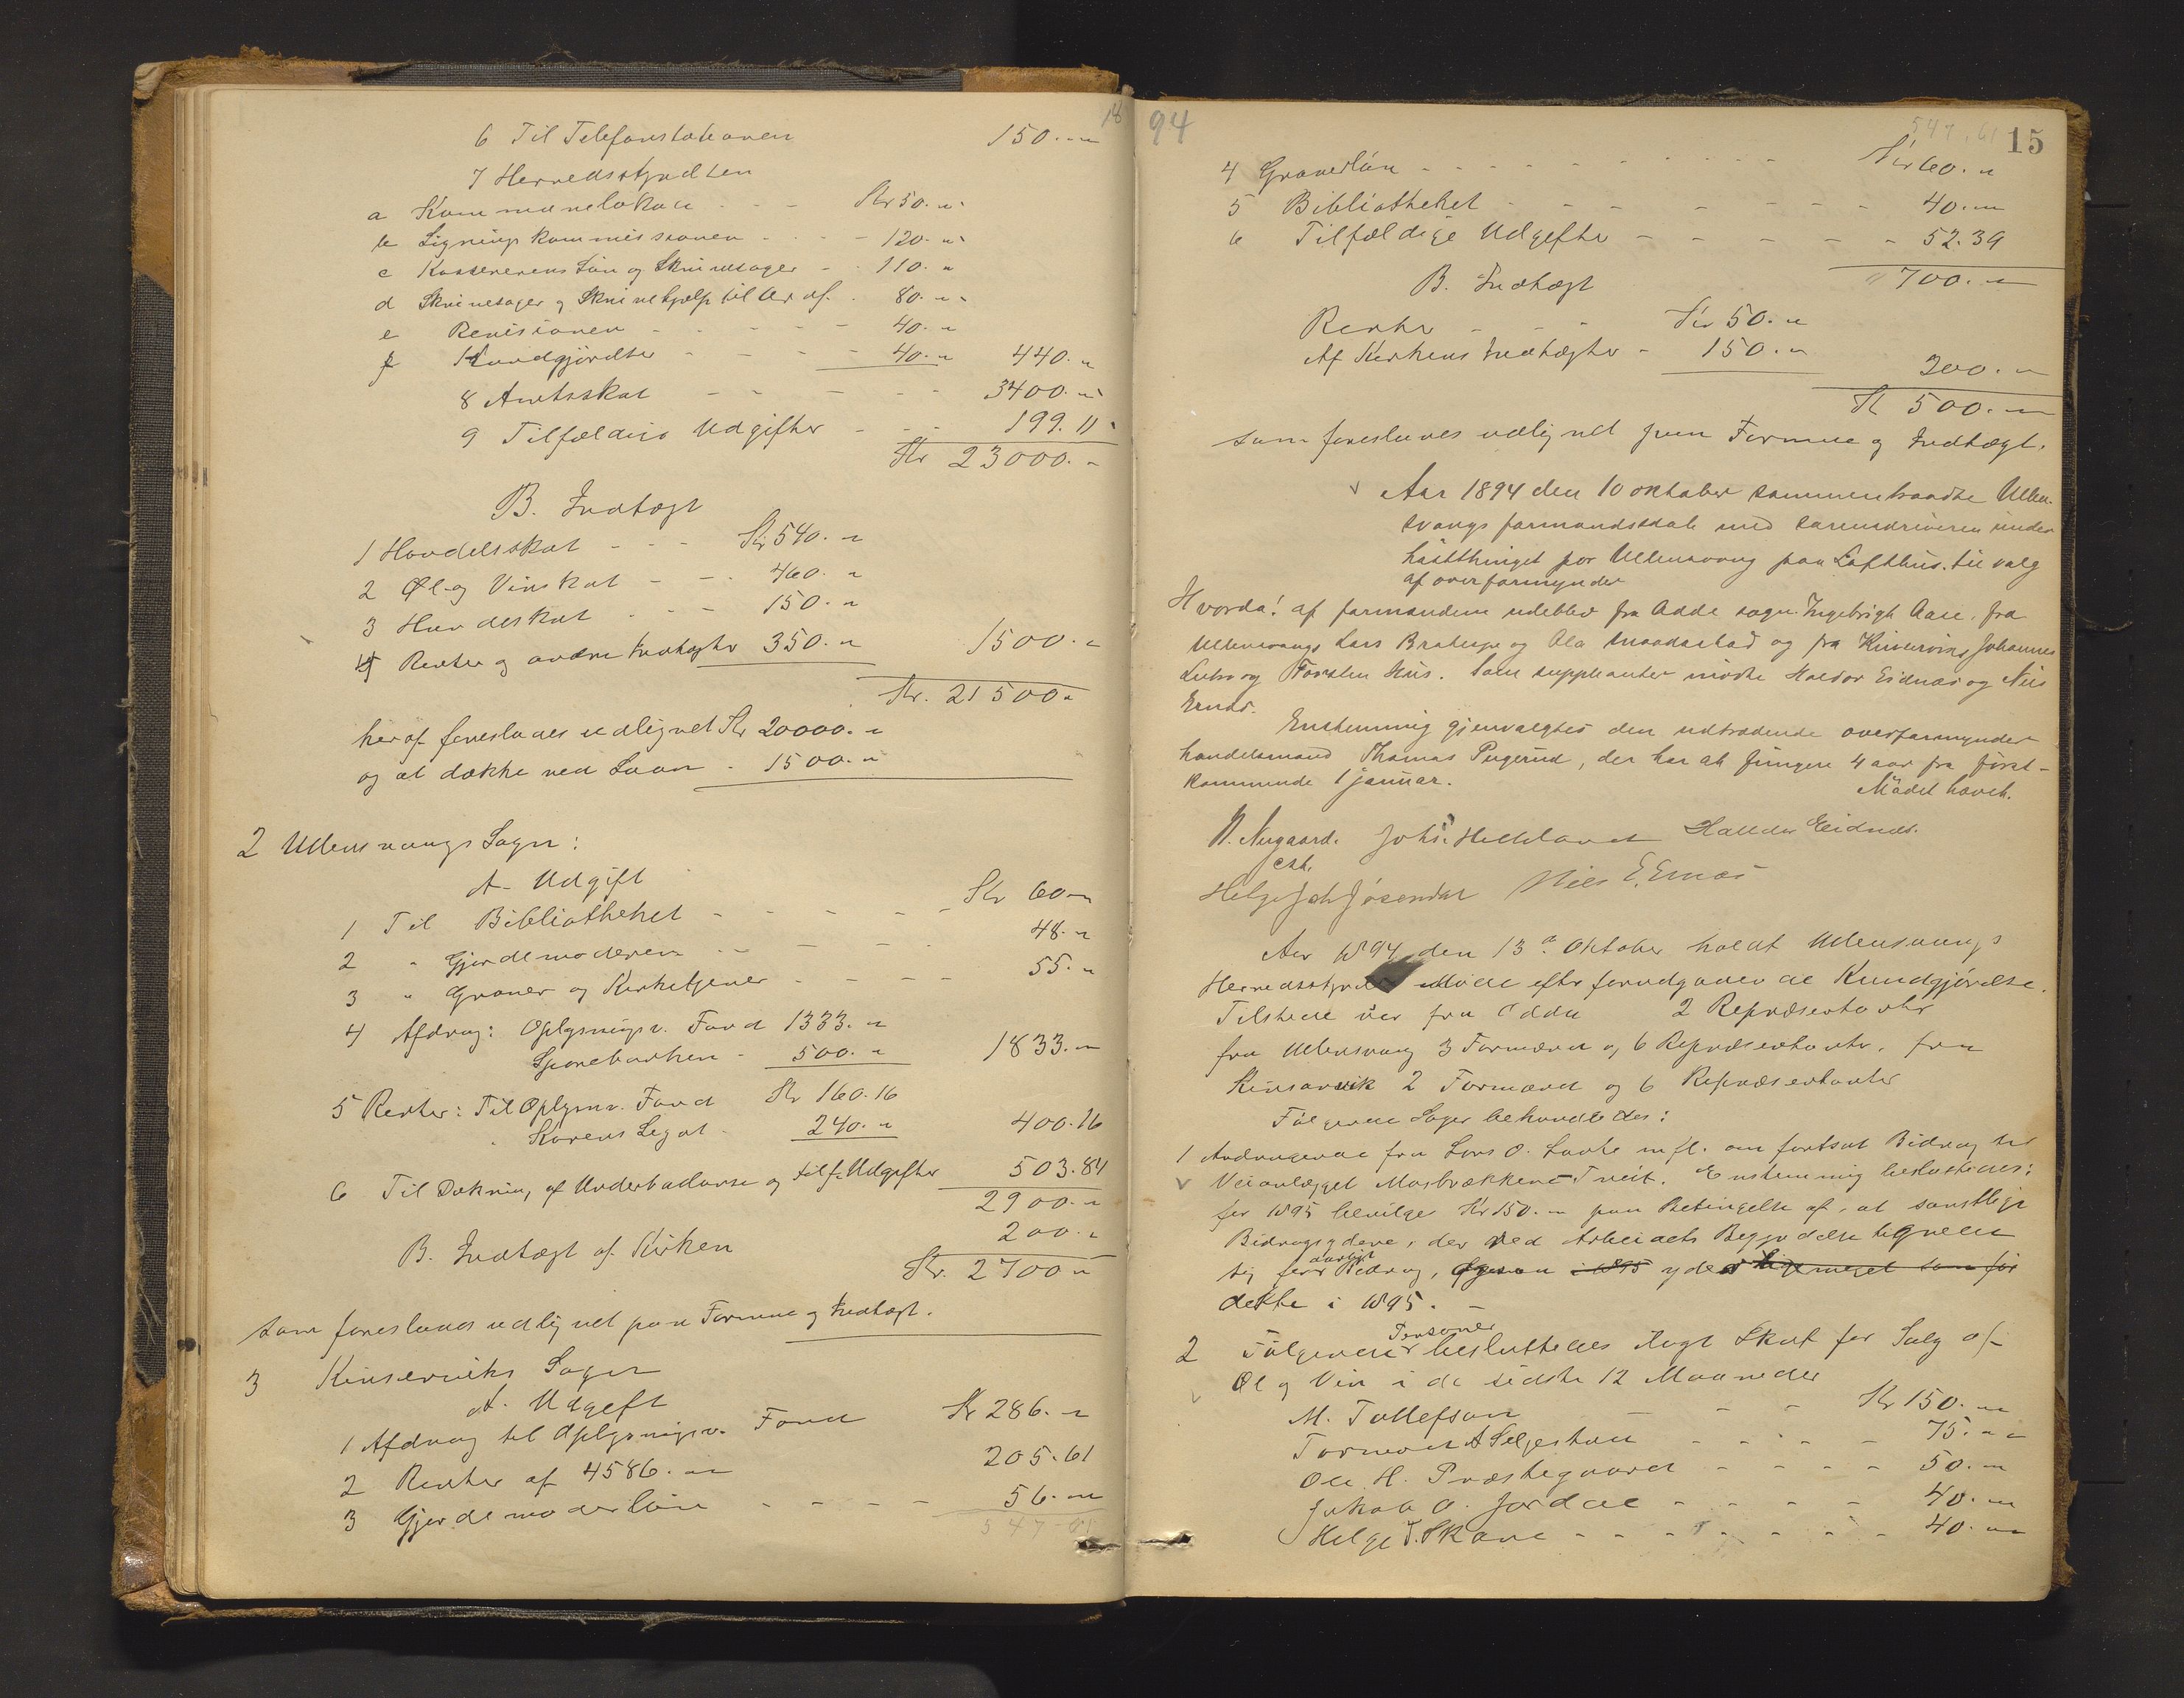 18
6 Til Telefonstationen 150.-"
7 Herredsstyrelsen
a Kommunelokale - - Kr 50. "
b Ligningskommissionen - - 120. "
c Kassererens Løn og Skrivesager - 110. "
d Skrivesager og Skrivehjælp til Ordf. 80. "
e Revisionen - - - - 40. "
f Kundgjørelser - - - 40. " 440. "
8 Amtsskat - - - - 3400. "
9 Tilfældige Udgifter - - - 199. 11
Kr 23000. "
B. Indtægt
1 Handelsskat - - - Kr 540. "
2 Øl- og Vinskat - - 460. "
3 Hundeskat - - - 150. "
4 Renter og andre Indtægter 350. " 1500. "
Kr. 21500 "
heraf foreslaaes udlignet Kr 20000. "
og at dække ved Laan - 1500. "
2 Ullensvangs Sogn:
A. Udgift
1 Til Bibliotheket - - - - - Kr 60 "
2 " Gjordemoderen - - - - 48. "
3 " Graver og Kirketjener - - - - 55. "
4 Afdrag: Oplysningsv. Fond 1333. "
Sparebanken - 500. " 1833. "
5 Renter: Til Oplysnv. Fond Kr 160.16
" Karens Legat - 240. " 400.16
6 Til Dækning af Underbalanse og tilf. Udgifter 503.84
2900. "
B. Indtægt af Kirken 200. "
Kr. 2700 "
som foreslaaes udlignet paa Formue og Indtægt.
3 Kinserviks Sogn
A. Udgift
1 Afdrag til Oplysningsv. Fond Kr 286. "
2 Renter af 4586. " 205.61
3 Gjordemoderløn - - - - 56. "
547-61
94
547.61 15
4 Graverløn - - - - - - - - Kr 60. "
5 Bibliotheket - - - - - - - 40. "
6 Tilfældige Udgifter - - - - - 52.39
700. "
B. Indtægt
Renter - - - Kr 50. "
Af Kirkens Indtægter - 150. " 200. "
Kr 500. "
som foreslaaes udlignet paa Formue og Indtægt.
Aar 1894 den 10 oktober sammentraadte Ullen-
svangs formandskab med sorenskriveren under
høstthinget for Ullensvang paa Lofthus til valg
af overformynder
Hvorda! af formændene udeblev fra Odde sogn Ingebrigt Aase, fra
Ullensvangs Lars Bratespe og Ola Maadastad og fra Kinservig Johannes
Lutro og Torsten Hus. Som suppleanter mødte Haldor Eidnæs og Nils
Ernæs.
Enstemmig gjenvalgtes den udtrædende overformynder
handelsmand Thomas Pugerud, der har at fungere 4 aar fra først-
kommende 1 januar. Mødet hævet.
N. Nygaard. Johs. Helleland Halldor Eidnæs.
cst.
Helge Joh Jøsendal Niels E. Ernæs
Aar 1894 den 13de Oktober holdt Ullensvangs
Herredsstyrelse Møde efter forudgaaende Kundgjørelse.
Tilstede var fra Odda 2 Repræsentanter
fra Ullensvang 3 Formænd og 6 Repræsentanter. fra
Kinsarvik 2 Formænd og 6 Repræsentanter
Følgende Sager behandledes:
1 Andragende fra Lars O. Laate m.fl. om fortsat Bidrag til
Veianlægget Mosbrækkene-Treit. Enstemmig besluttedes:
for 1895 bevilges Kr 150. " paa Betingelse af, at samtlige
Bidragsydere, der ved Arbeidets Begyndelse tegnede
sig for aarligt Bidrag, i 1895 yder ligemeget som før
dette i 1895. -
2 Følgende Personer besluttedes ilagt Skat for Salg af
Øl og Vin i de sidste 12 Maaneder
M. Tollefsen - - - Kr 150. "
Tormod A Seljestad - - - - 75. "
Ole H. Præstegaard - - - - 50. "
Jakob O. Jordal - - - - 40. "
Helge T. Skare - - - - - - 40. "